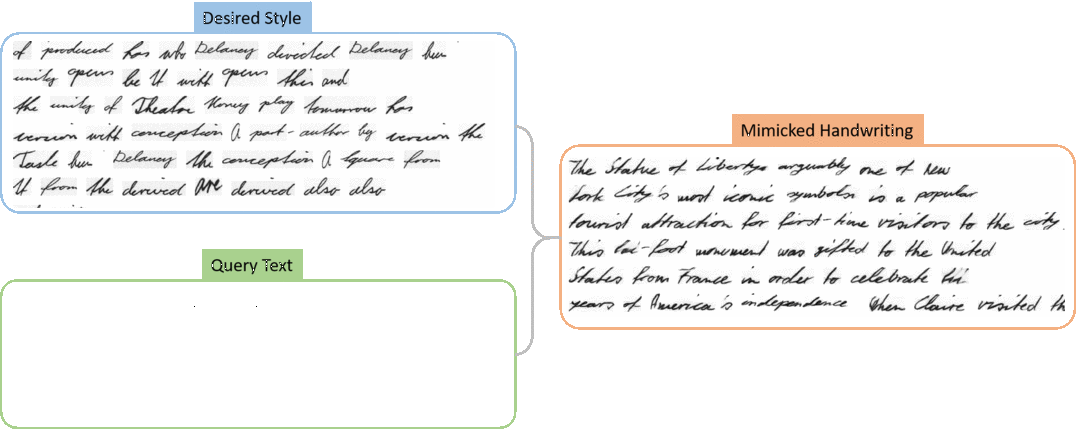 Desired Style
of produced has who Delaney divided Delaney her
unity opens be It with opens this and
the unity of Theatre Honey play tomorrow has
version with conception A part-author by version the
Taste her Delaney the conception A Square from
It from the derived are derived also also
Query Text
Mimicked Handwriting
The Statue of Libertys arguably one of New
York City's most iconic symbols is a popular
tourist attraction for first-time visitors to the city.
This foot monument was gifted to the United
States from France in order to celebrate
years of America's independence When Claire visited th